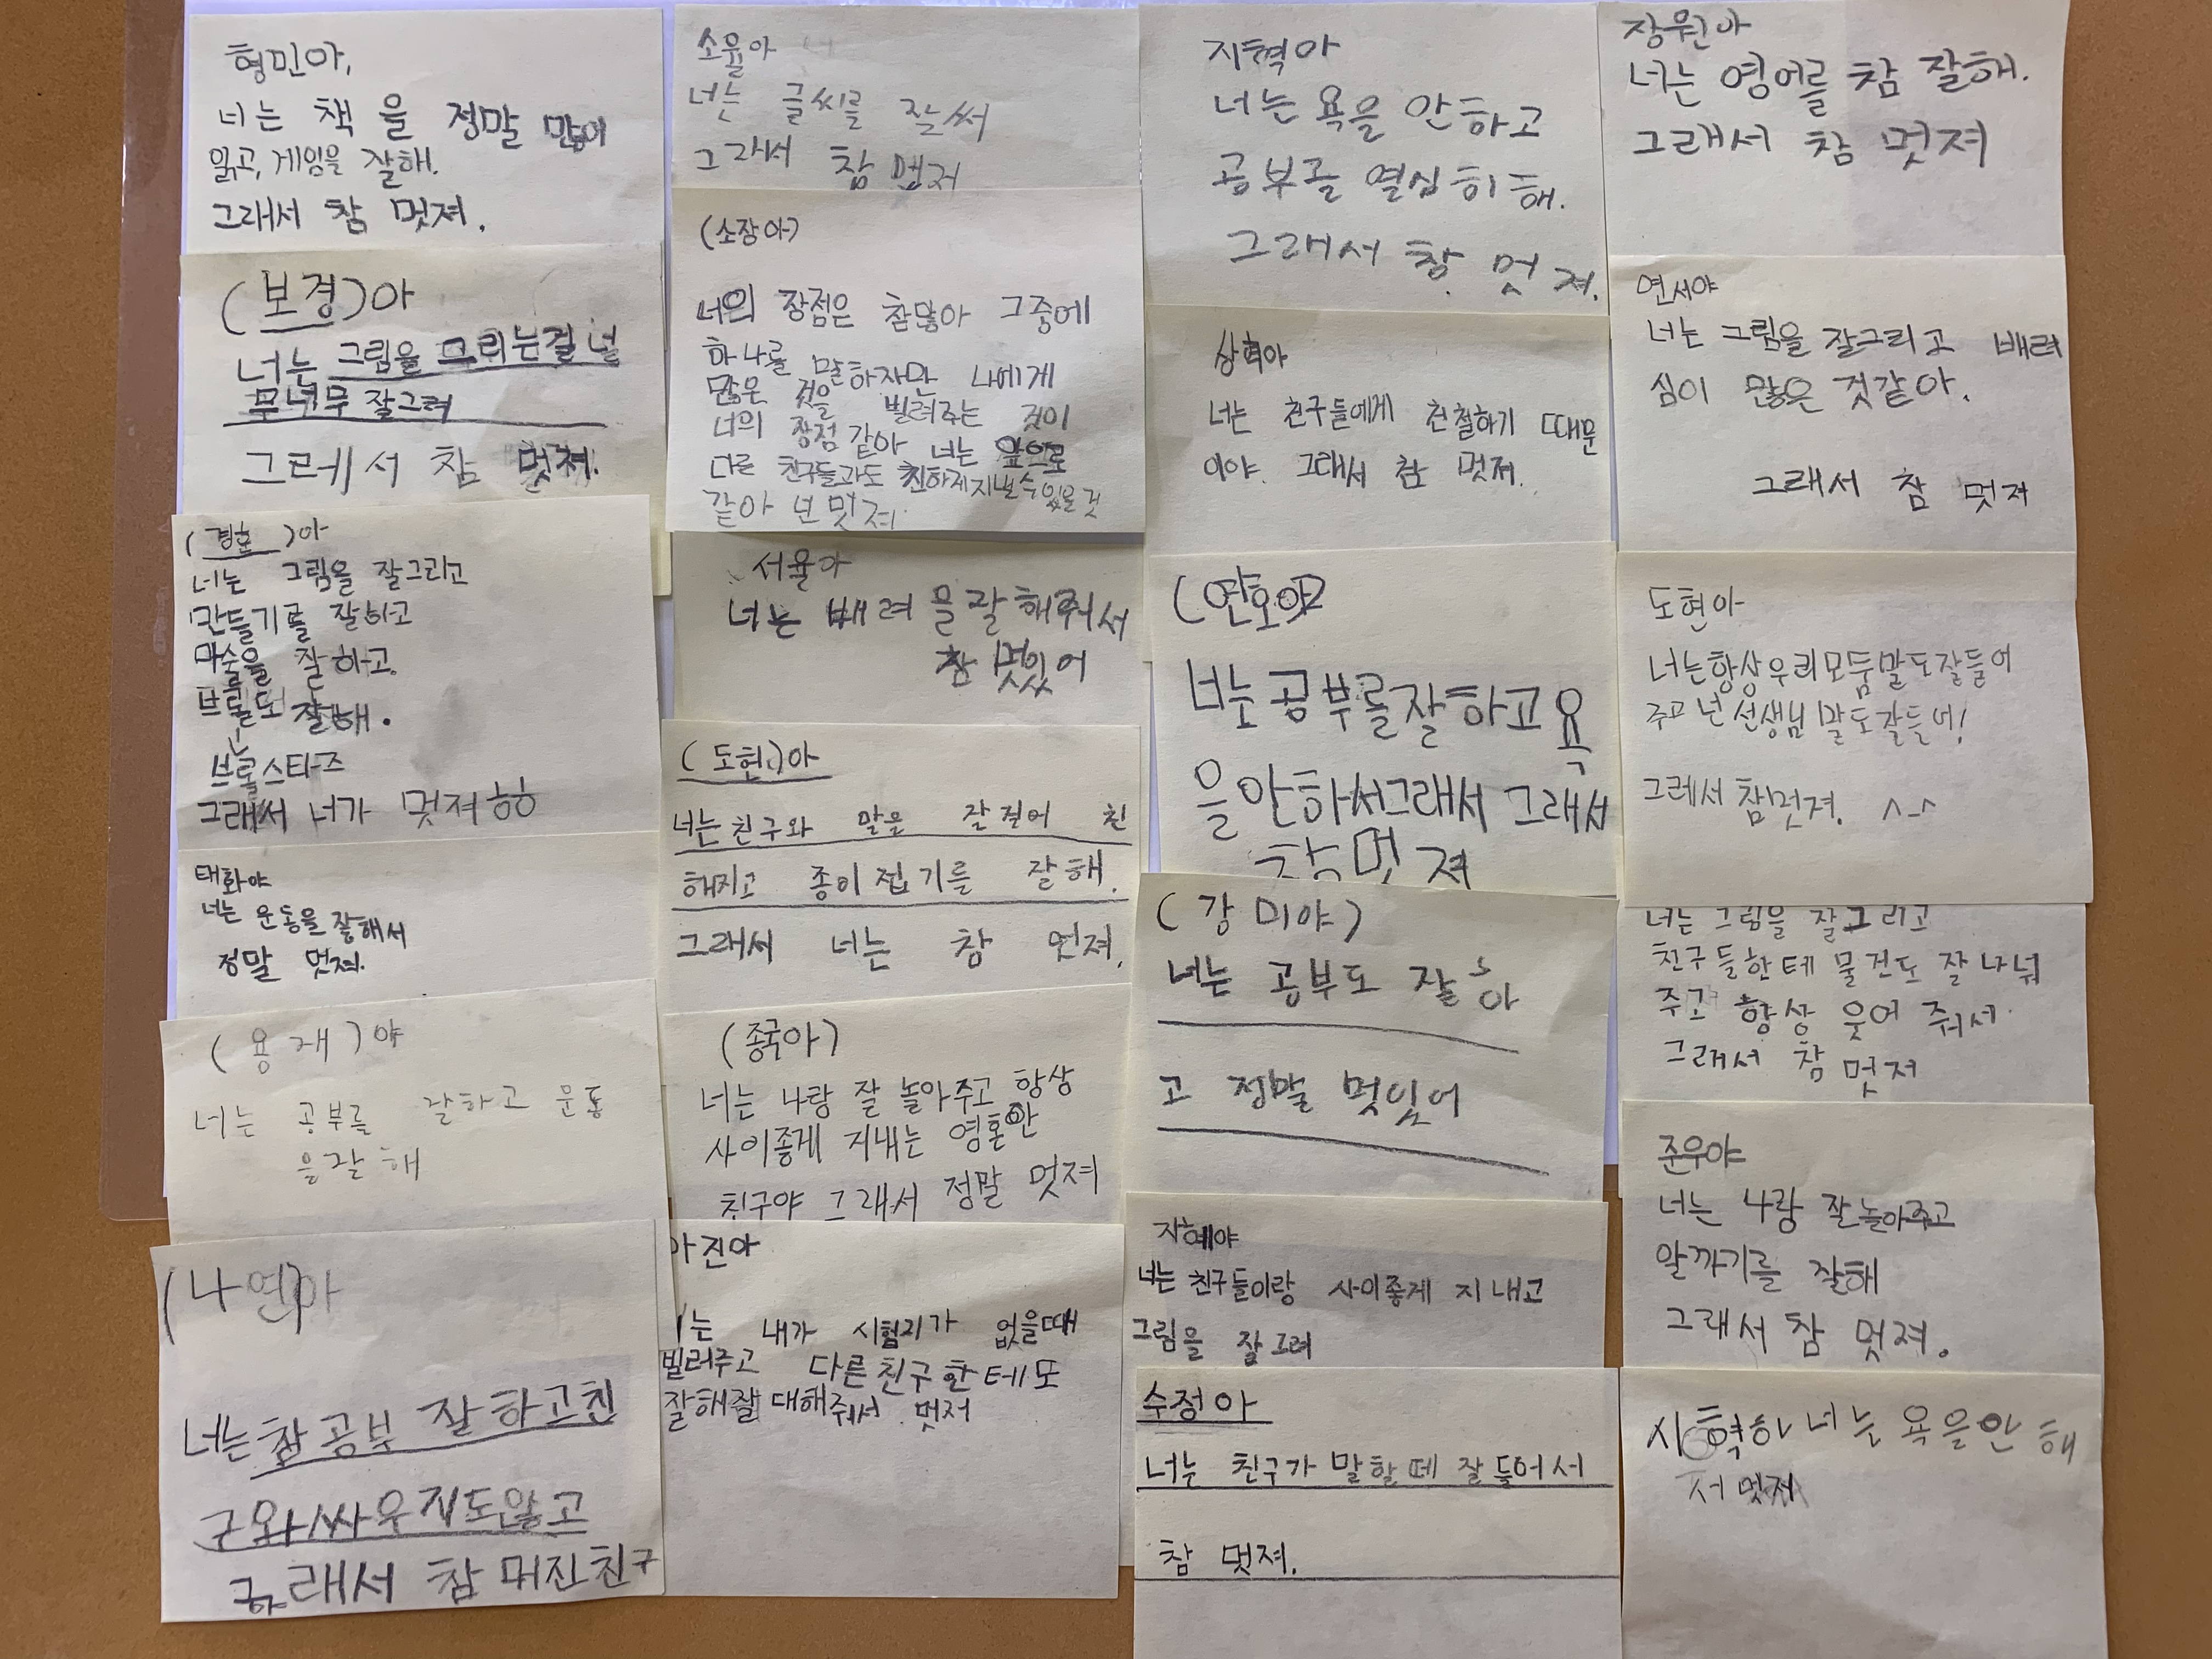 형민아,
너는 책을 정말 많이
읽고, 게임을 잘해.
그래서 참 멋져.
(보경)아
너는 그림을 무리는걸 널
무 너무 잘그려
그래서 참 멋져.
너는 그림을 잘그리고
만들기를 잘하고
마술을 잘하고.
브롤도 잘해.
브롤스타즈
그래서 너가 멋져
태화야
너는 운동을 잘해서
정말 멋져.
(용재)야
너는 공부를 잘하고 공놀
나영아
너는참공부 잘하고친
구와싸우지도않고
그래서 참 멋진친구
소율아
너는 글씨를 잘써
그래서 참 멋져
너의 장점은 참많아 그중에
하나를 말하자면 나에게
많은 것을 빌려주는 것이
너의 장점 같아 너는 앞으로
다른 친구들과도 친하게지낼수있을것
같아 넌 멋져.
서윤아
너는 배려를 잘해줘서
참 멋있어
(도현)아
너는 친구와 말을 잘걸어 친
해지고 종이접기를 잘해.
그래서 너는 참 멋져.
너는 나랑 잘 놀아주고 항상
사이좋게 지내는 영원한
친구야 그래서 정말 멋져
너는 내가 시험지가 없을때
빌려주고 다른친구한테도
잘해잘대해줘서 멋져
지혁아
너는 욕을 안하고
공부를 열심히해.
그래서 참 멋져.
상혁아
너는 친구들에게 친절하기 때문
이야. 그래서 참 멋져.
너는공부를잘하고욕
을안하써그래서 그래서
참멋져
(강미야)
너는 공부도 잘하
고 정말 멋있어
지혜야
너는 친구들이랑 사이좋게 지내고
그림을 잘그려
수정아
너는 친구가 말할때 잘들어서
참 멋져.
정원아
너는 영어를 참 잘해.
그래서 참 멋져
연서야
너는 그림을 잘그리고 배려
심이 많은 것같아.
그래서 참 멋져
도현아
너는항상우리모둠말도잘들어
주고 넌 선생님 말도잘들어!
그래서 참멋져. ^-^
너는 그림을 잘그리고
친구들한테 물건도 잘나눠
주고 항상 웃어 줘서
그래서 참 멋져
준우야
너는 나랑 잘놀아주고
알까기를 잘해
그래서 참 멋져.
지혁아 너는 욕을안해
서 멋져